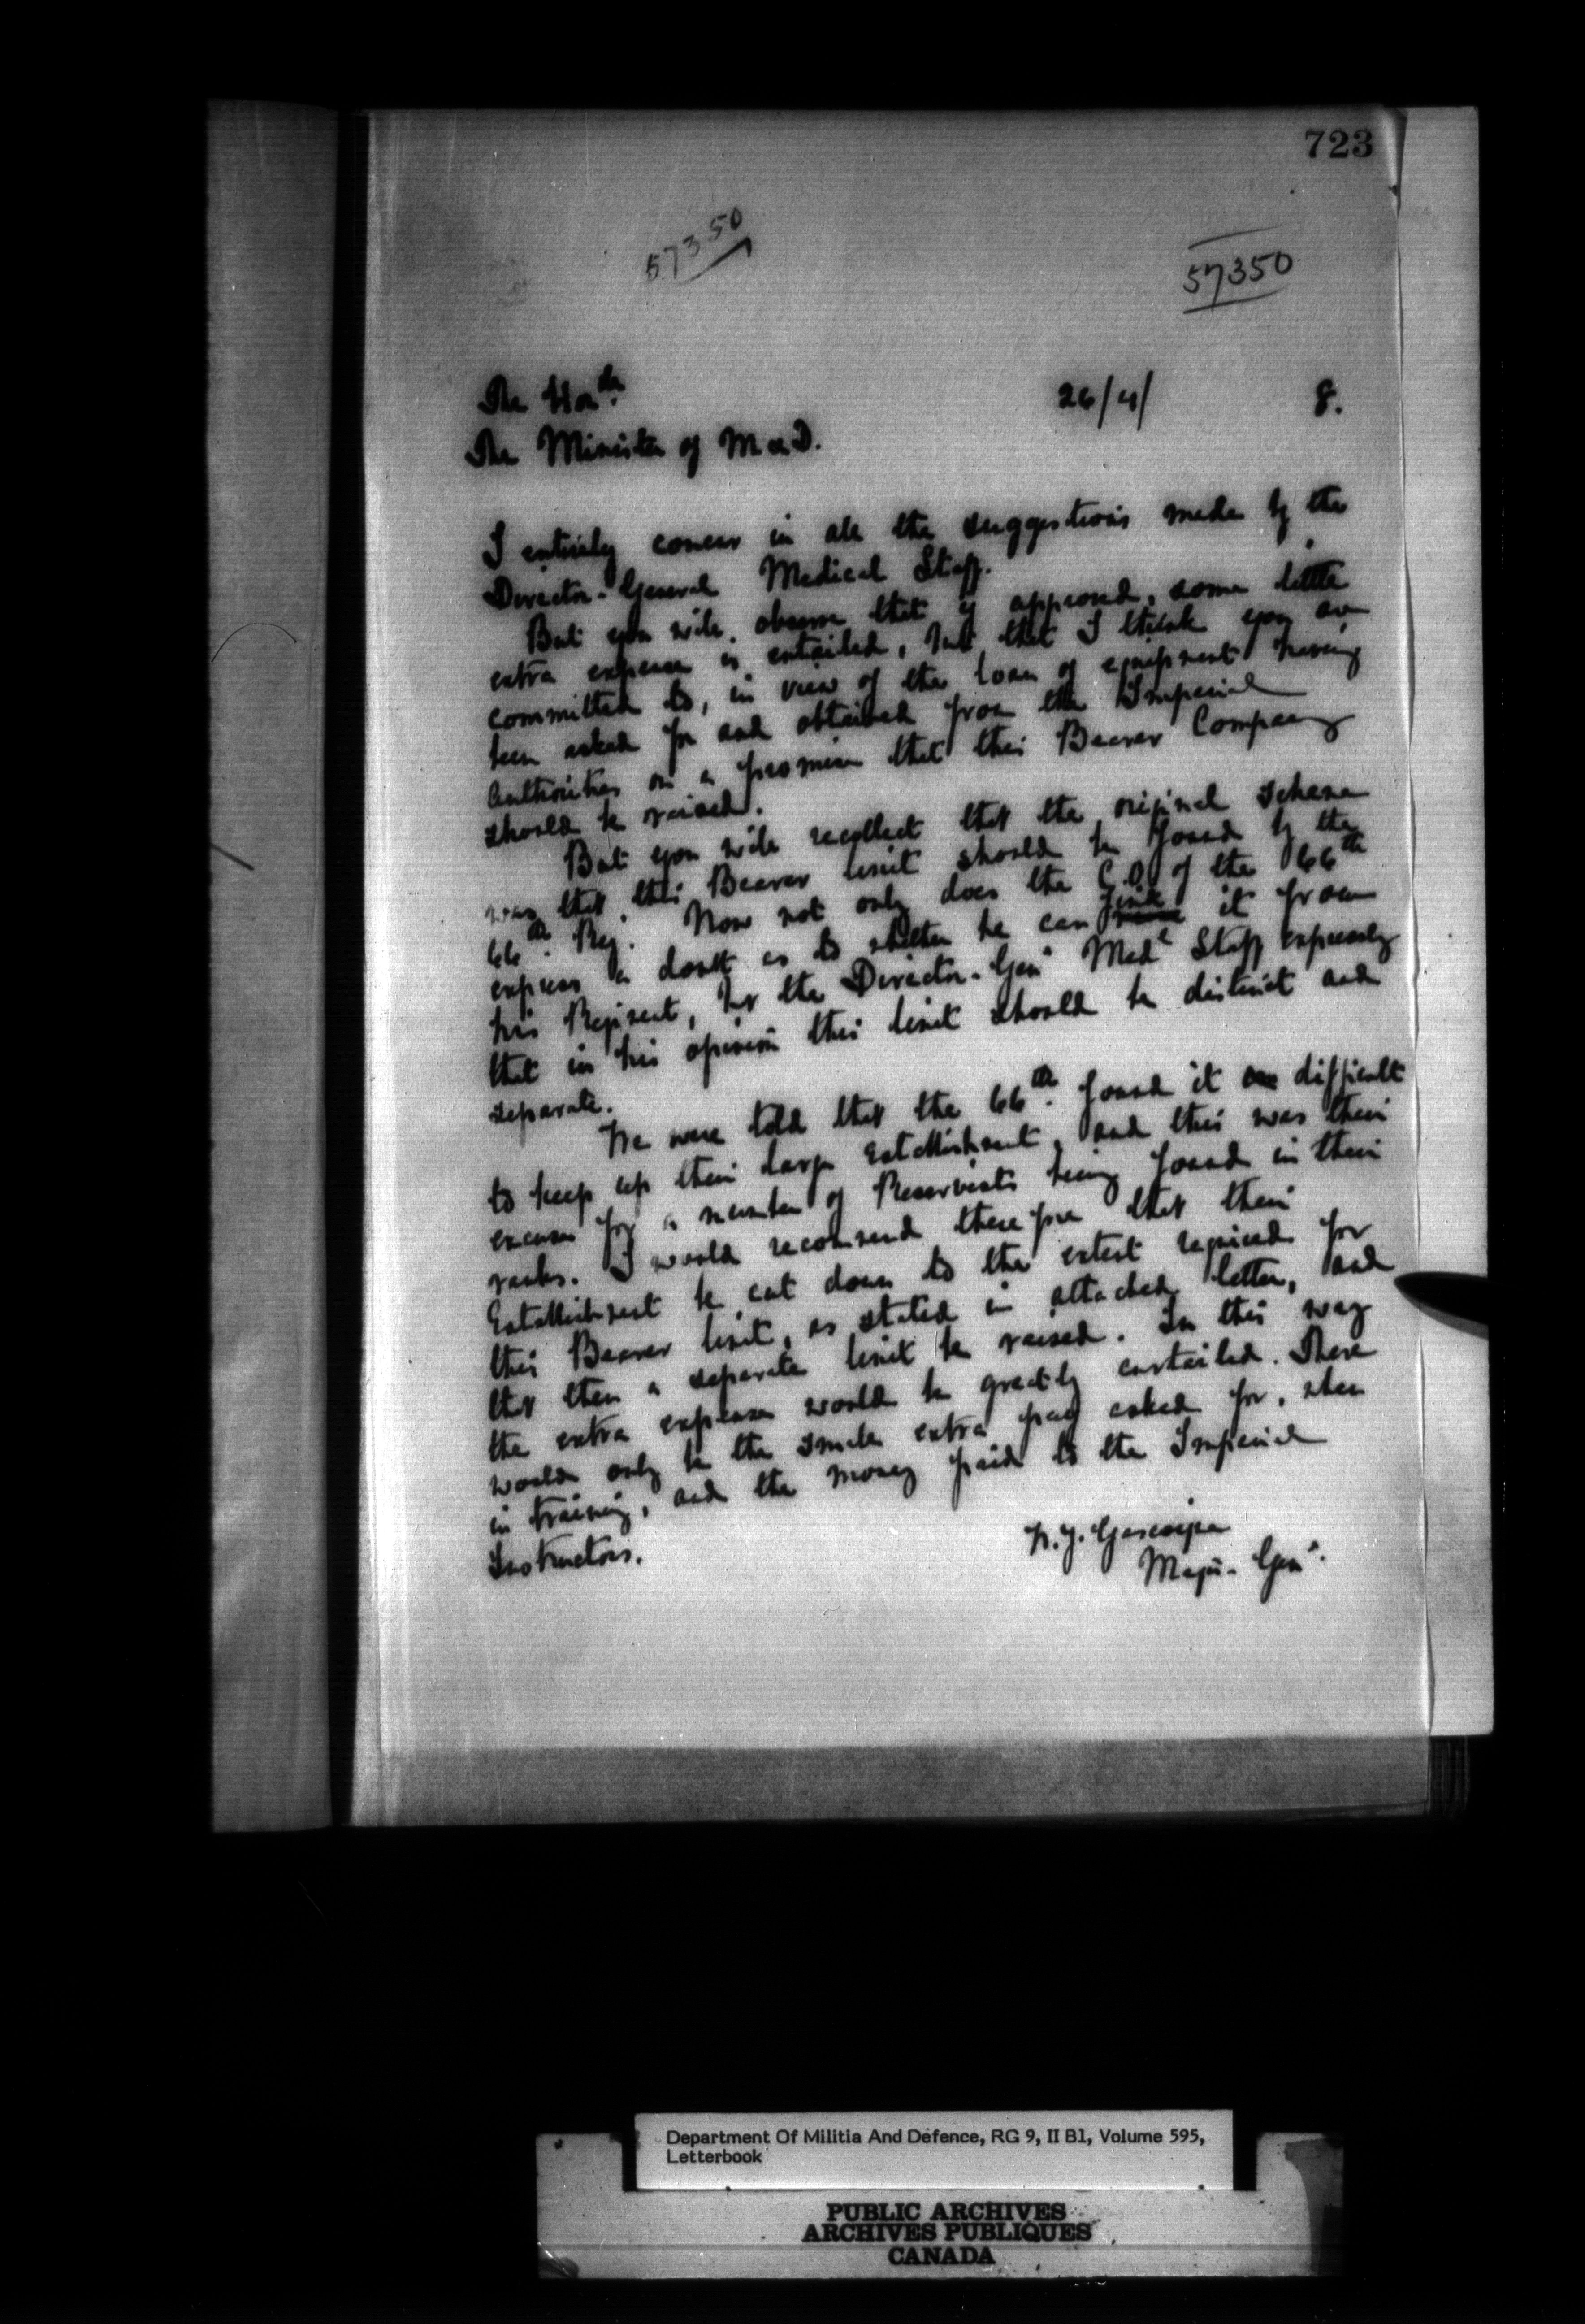 723
57350
57350
The Honble
26/4/ 8.
The Minister of M & D.
I entirely concur in all the suggestions made by the
Director-General Medical Staff.
But you will observe that if approved, some little
extra expense is entailed, but that I think you are
committed to, in view of the loan of equipment having
been asked for and obtained from the Imperial
Authorities on a promise that this Bearer Company
should be raised.
But you will recollect that the original scheme
was that this Bearer Unit should be found by the
66th Reg. Now not only does the C.O. of the 66th
express a doubt as to whether he can find it from
his Regiment, but the Director-Genl Medl Staff expressly
that in his opinion this Unit should be distinct and
separate.
We were told that the 66th found it difficult
to keep up their large Establishment, and this was their
excuse for a number of Reservists being found in their
ranks. I would recommend therefore that their
Establishment be cut down to the extent required for
this Bearer Unit, as stated in attached letter, and
that then a separate Unit be raised. In this way
the extra expense would be greatly curtailed. There
would only be the small extra pay asked for, when
in training, and the money paid to the Imperial
Instructors.
W. J. Gascoigne
Major-Genl.
Department Of Militia And Defence, RG 9, II B1, Volume 595,
Letterbook
PUBLIC ARCHIVES
ARCHIVES PUBLIQUES
CANADA